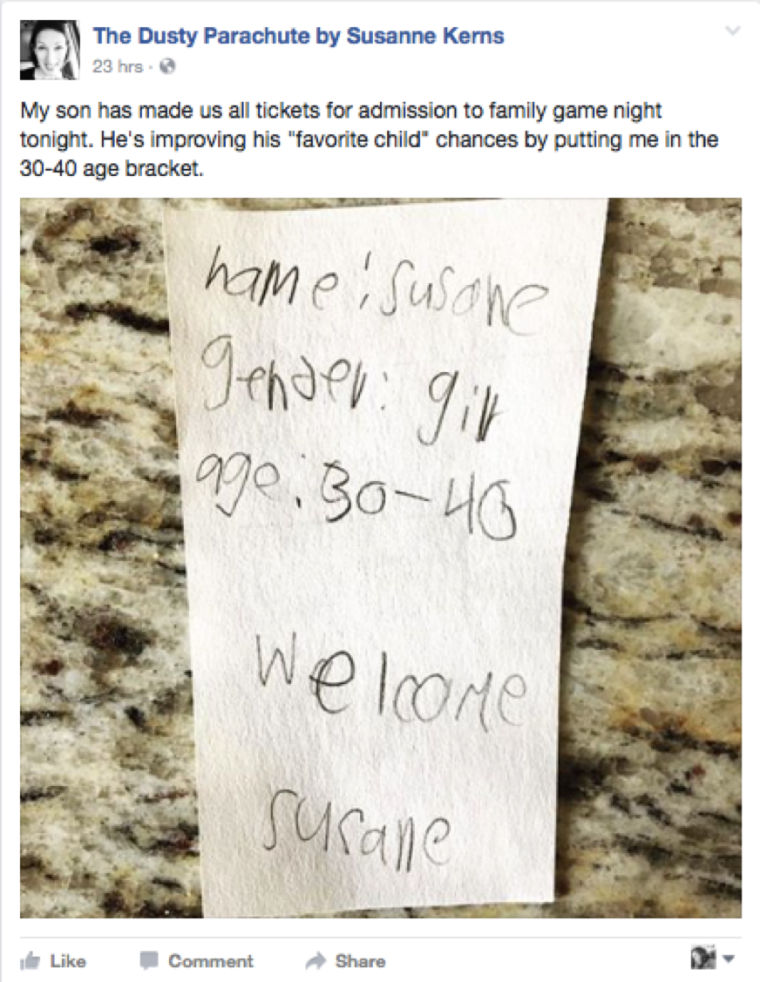 The Dusty Parachute by Susanne Kerns
23 hrs ·
My son has made us all tickets for admission to family game night
tonight. He's improving his "favorite child" chances by putting me in the
30-40 age bracket.
name: Susane
gender: girl
age: 30-40
welcome
susane
Like Comment Share